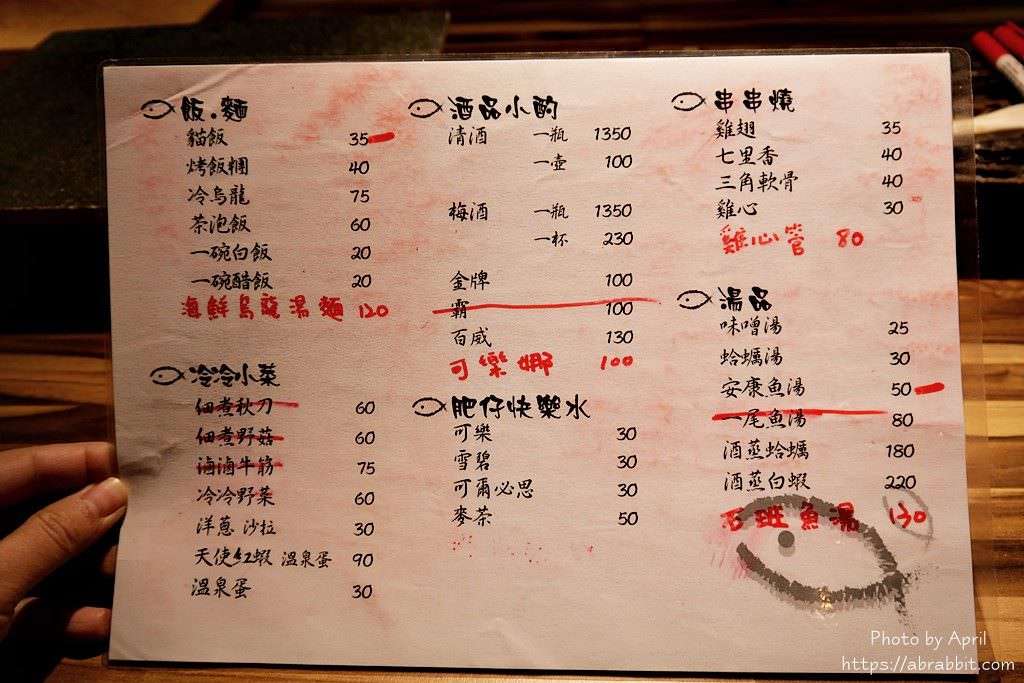 飯.麵
貓飯 35
烤飯糰 40
冷烏龍 75
茶泡飯 60
一碗白飯 20
一碗醋飯 20
海鮮烏龍湯麵 120
冷冷小菜
佃煮秋刀 60
佃煮野菇 60
滷滷牛筋 75
冷冷野菜 60
洋蔥沙拉 30
天使紅蝦 溫泉蛋 90
溫泉蛋 30
酒品小酌
清酒 一瓶 1350
一壺 100
梅酒 一瓶 1350
一杯 230
金牌 100
霸 100
百威 130
可樂娜 100
肥仔快樂水
可樂 30
雪碧 30
可爾必思 30
麥茶 50
串串燒
雞翅 35
七里香 40
三角軟骨 40
雞心 30
雞心管 80
湯品
味噌湯 25
蛤蠣湯 30
安康魚湯 50
一尾魚湯 80
酒蒸蛤蠣 180
酒蒸白蝦 220
石斑魚湯 130
Photo by April
https://abrabbit.com